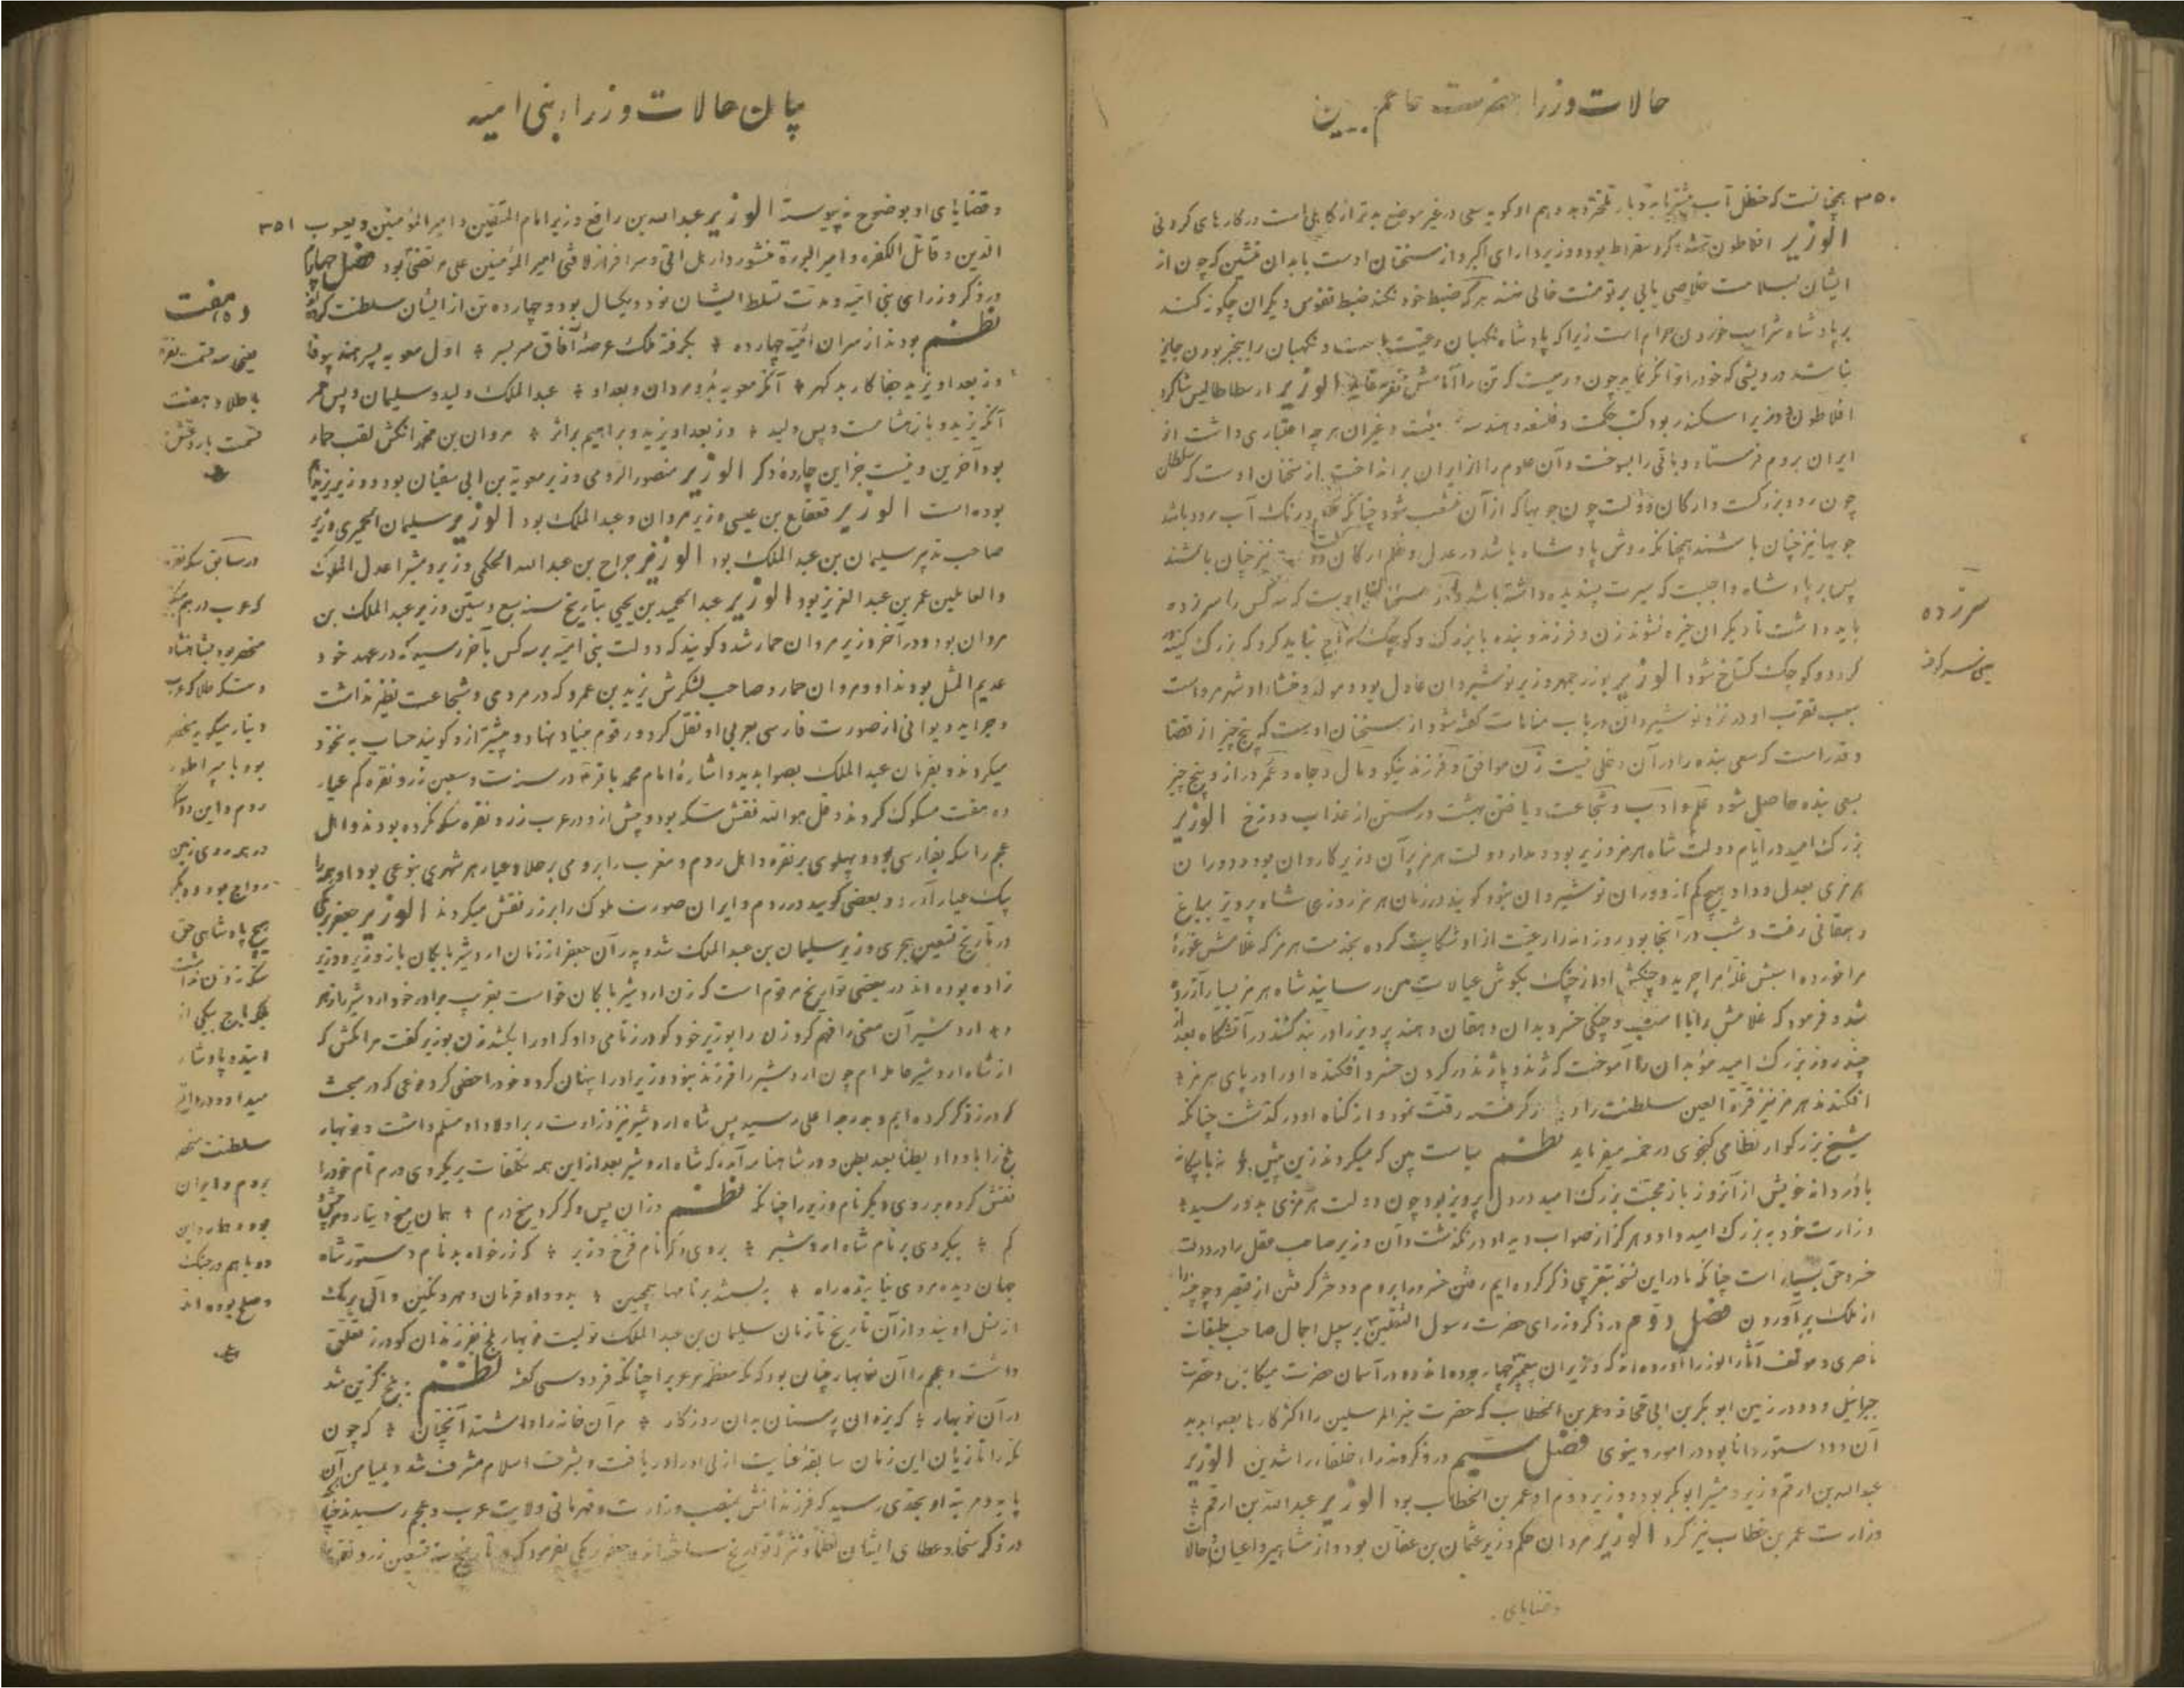 حالات وزراء حضرت
۳۵۰
همچنانست که حنظل آب در غیر موضع بدتر از کاهلی است در کارهای کردنی
الوزیر افلاطون شاگرد سقراط بود و وزیر دارای اکبر و از سخنان اوست با بدان منشین که چون از
ایشان بسلامت خلاصی یابی بر تو منت خالی نهند هر که ضبط خود نکند ضبط نفوس دیگران چگونه کند
بر پادشاه شراب خوردن حرام است زیرا که پادشاه نگهبان رعیت است و نگهبان را بیخبر بودن جایز
نباشد درویشی که خود را توانگر نماید چون ورمیست که تن را الوزیر ارسطاطالیس شاگرد
افلاطون و وزیر اسکندر بود کتب حکمت و فلسفه و هندسه و غیر آن هر چه اعتباری داشت از
ایران بروم فرستاد و باقی را بسوخت و آن علوم را از ایران برانداخت از سخنان اوست که سلطان
چون رود بزرگست و ارکان دولت چون جویها که از آن منشعب شود چنانکه در آب رود باشد
جویها نیز چنان باشند همچنانکه روش پادشاه باشد در عدل و ظلم ارکان دولت نیز چنان باشند
پس بر پادشاه واجبست که سیرت پسندیده داشته باشد از سخنان اوست که سه کس را سرزده
باید داشت تا دیگران خیره نشوند زن و فرزند و بنده با بزرگ و کوچک نباید کرد که بزرگ کینه
گردد و کوچک گستاخ شود الوزیر بوزرجمهر وزیر نوشیروان عادل بود و مولد و منشاء او شهر مرو است
سبب تقرب او در نزد نوشیروان در باب منامات گفته شود از سخنان اوست که پنج چیز از قضا
و قدر است که سعی بنده را در آن دخلی نیست زن موافق و فرزند نیکو و مال و جاه و عمر دراز و پنج چیز
بسعی بنده حاصل شود علم و ادب و شجاعت و یافتن بهشت و رستن از عذاب دوزخ الوزیر
بزرگ امید در ایام دولت شاه هرمز وزیر بود و مدار دولت هرمز بر آن وزیر کاردان بود و دوران
هرمزی بعدل و داد هیچ کم از دوران نوشیروان نبود گویند در زمان هرمز روزی شاه پرویز بباغ
دهقانی رفت و شب در آنجا بود روزانه رعیت از او شکایت کرده بخدمت هرمز که غلامش غوره
مرا خورده اسبش غله مرا چرید و چنگی او آواز چنگ بگوش عیالات من رسانید شاه هرمز بسیار آزرده
شد و فرمود که غلامش را با اسب و چنگی خسرو بدان دهقان دهند پرویز را در بند کشند در آتشگاه بعد از
چند روز بزرگ امید موبدان را آموخت که زند و پازند در گردن خسرو افکنده او را در پای هرمز
افکندند هرمز نیز قرة العین سلطنت را گرفته رقت نمود و از گناه او در گذشت چنانکه
شیخ بزرگوار نظامی گنجوی در خمسه میفرماید نظم سیاست بین که میکردند زین پیش نه با بیگانه
با دردانه خویش از آنروز باز محبت بزرگ امید در دل پرویز بود چون دولت هرمزی بدو رسید
وزارت خود به بزرگ امید داد و هرگز از صواب دید او در نگذشت و آن وزیر صاحب عقل را در دولت
خسرو حق بسیار است چنانکه ما در این نسخه بتقریبی ذکر کرده‌ایم رفتن خسرو را بروم و دختر گرفتن از قیصر
از ملک برآوردن فصل دوم در ذکر وزرای حضرت رسول الثقلین بر سبیل اجمال صاحب طبقات
ناصری و مؤلف آثار الوزرا آورده‌اند که وزیران پیغمبر چهار بوده‌اند دو در آسمان حضرت میکائیل و حضرت
جبرائیل و دو در زمین ابوبکر بن ابی قحافه و عمر بن الخطاب که حضرت خیر المرسلین را اکثر کارها بصوابدید
آن دو دستور دانا بود در امور دنیوی فصل سیم در ذکر وزراء خلفاء راشدین الوزیر
عبدالله بن ارقم وزیر و مشیر ابوبکر بود و وزیر دوم او عمر بن الخطاب بود الوزیر عبدالله بن ارقم
وزارت عمر بن خطاب نیز کرد الوزیر مروان حکم وزیر عثمان بن عفان بود و از مشاهیر و اعیان حالات
وقضایای
سرزده
یعنی سرکوفته
بیان حالات وزراء بنی امیه
۳۵۱
و قضایای او بوضوح پیوسته الوزیر عبدالله بن رافع وزیر امام المتقین و امیر المؤمنین و یعسوب
الدین و قاتل الکفره و امیر البررة منشور دار هل اتی و سرافراز لا فتی امیر المؤمنین علی مرتضی بود فصل چهارم
در ذکر وزرای بنی امیه و مدت تسلط ایشان نود و یکسال بود و چهارده تن از ایشان سلطنت کرده‌اند
نظم بودند از سران امیه چهارده بگرفته ملک عرصهٔ آفاق سر بسر اول معویه پسر هند بیوفا
وز بعد او یزید جفاکار بد گهر آنگه معویه بد و مروان و بعد او عبدالملک ولید و سلیمان و پس عمر
آنگه یزید و باز هشام و پس ولید وز بعد او یزید و براهیم بر اثر مروان بن محمد آنکش لقب حمار
بود آخرین و نیست جز این چارده دگر الوزیر منصور الرومی وزیر معویة بن ابی سفیان بود و وزیر یزید
بوده است الوزیر قعقاع بن عیسی وزیر مروان و عبدالملک بود الوزیر سلیمان الحمیری وزیر
صاحب تدبیر سلیمان بن عبدالملک بود الوزیر جراح بن عبدالله الحکمی وزیر و مشیر اعدل الملوک
والعاملین عمر بن عبدالعزیز بود الوزیر عبدالحمید بن یحیی بتاریخ سنه سبع و ستین وزیر عبدالملک بن
مروان بود و در آخر وزیر مروان حمار شد و گویند که دولت بنی امیه بر سه کس بآخر رسید که در عهد خود
عدیم المثل بودند او و مروان حمار و صاحب لشکرش یزید بن عمرو که در مردی و شجاعت نظیر نداشت
و جراید دیوانی از صورت فارسی بعربی او نقل کرد و رقوم بنیاد نهاد و پیشتر از او گویند حساب به نخود
میکردند و بفرمان عبدالملک بصوابدید و اشارهٔ امام محمد باقر در سنه ست و سبعین زر و نقره کم عیار
ده هفت مسکوک کردند و قل هو الله نقش سکه بود و پیش از او در عرب زر و نقره سکه نکرده بودند و اهل
عجم را سکه بفارسی بود و پهلوی بر نقره و اهل روم و مغرب را برومی بر طلا و عیار هر شهری بنوعی بود او همه را
یک عیار آورد و بعضی گویند در روم و ایران صورت ملوک را بر زر نقش میکردند الوزیر جعفر برمکی
در تاریخ تسعین هجری وزیر سلیمان بن عبدالملک شد و پدر آن جعفر از زمان اردشیر بابکان باز وزیر و وزیر
زاده بوده‌اند در بعضی تواریخ مرقوم است که زن اردشیر بابکان خواست بفریب برادر خود اردشیر را زهر
دهد اردشیر آن معنی را فهم کرد زن را بوزیر خود که ورزنامی داد که او را بکشد زن بوزیر گفت مرا مکش که
از شاه اردشیر حامله‌ام چون اردشیر را فرزند نبود وزیر او را پنهان کرد و خود را خصی کرد بنوعی که در مبحث
که در ذکر کرده‌ایم و بدرجهٔ اعلی رسید پس شاه اردشیر نیز وزارت را بر اولاد او مسلم داشت و نوبهار
بلخ را باو داد بطنا بعد بطن و در شاهنامه آمده که شاه اردشیر بعد از این همه تکلفات بر یکروی درم نام خود را
نقش کرده بر روی دیگر نام وزیر را چنانکه نظم وزان پس دگر کرد میخ درم همان میخ دینار و هر بیش و
کم بیکروی بر نام شاه اردشیر بروی دگر نام فرخ وزیر که زر خواهد نام دستور شاه
جهان دیده مردی نماینده راه نوشتند بر نامها همچنین بدو داد فرمان و مهر و نگین و آل برمک
از نسل اویند و از آن تاریخ تا زمان سلیمان بن عبدالملک تولیت نوبهار بلخ بفرزندان که ورز تعلق
داشت و عجم را آن نوبهار چنان بود که مکه معظمه مر عرب را چنانکه فردوسی گفته نظم ببلخ گزین شد
در آن نوبهار که یزدان پرستان بدان روزگار مر آن خانه را داشتند آنچنان که چون
مکه را تازیان این زمان سابقهٔ عنایت ازلی او را دریافت و بشرف اسلام مشرف شد و بمیامن آن
پایه و مرتبه او بحدی رسید که فرزندانش بمنصب وزارت و قهرمانی ولایت عرب و عجم رسیدند
در ذکر سخا و عطای ایشان نظما و نثرا تواریخ ساخته‌اند و جعفر برمکی بفرمود که در تاریخ سنه تسعین زر و نقره
ده هفت
یعنی سه قسمت نقره
با طلا و هفت
قسمت بار و غش
در سابق سکه نقره
که عرب درهم میگوید
منحصر بود بشاهنشاه
و سکه طلا که عرب
دینار میگوید منحصر
بود با مپراطور
روم و این دو سکه
در همه روی زمین
رواج بود و دیگر
هیچ پادشاهی حق
سکه زدن نداشت
بلکه باج بیکی از
این دو پادشاه
میداد و در واقع
سلطنت منحصر
بروم و ایران
بود و هماره این
دو با هم در جنگ
و صلح بوده‌اند